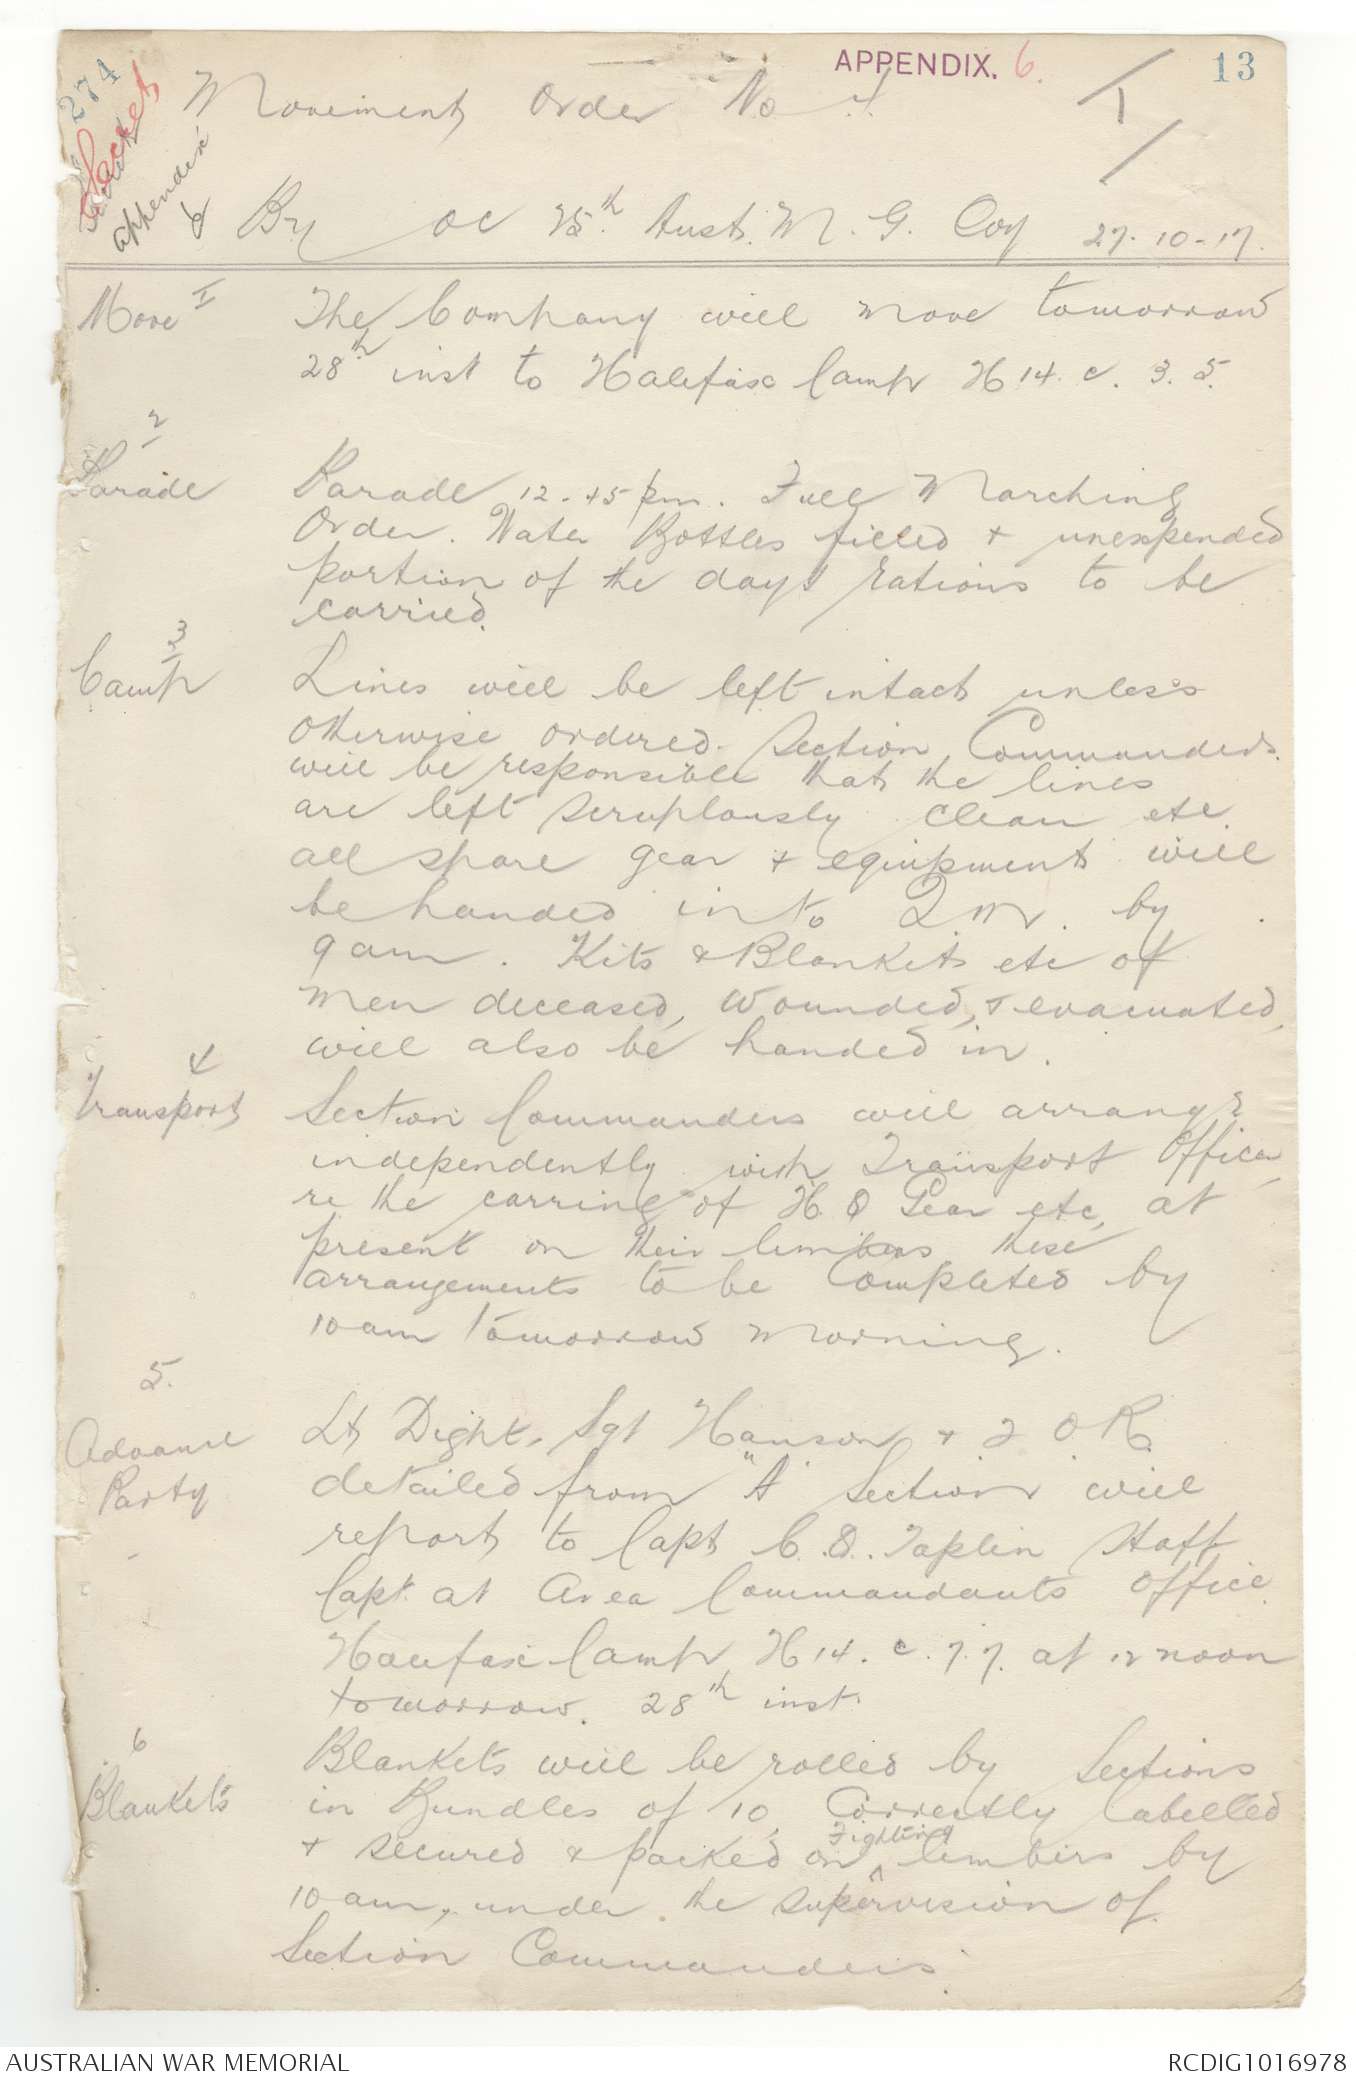 APPENDIX. 6. 13
274
Secret
appendix
6
Movement Order No 4.
By OC 25th Aust. M. G. Coy 27-10-17.
Move I The Company will move tomorrow
28th inst to Halifax Camp H 14. c. 3. 5.
2
Parade Parade 12-45 pm. Full Marching
Order. Water Bottles filled & unexpended
portion of the days rations to be
carried.
3
Camp Lines will be left intact unless
otherwise ordered. Section Commanders.
will be responsible that the lines
are left scruplously clean etc.
all spare gear & equipment will
be handed into Q M. by
9 am. Kits & Blankets etc of
men deceased, wounded, & evacuated,
will also be handed in.
4
Transport Section Commanders will arrange
independently with Transport Officer,
re the carring of H. Q Gear etc, at
present on their limbers these
arrangements to be completed by
10 am tomorrow morning.
5.
Advance Party Lt Dight, Sgt Hanson & 2 O.R.
detailed from "A" Section will
report to Capt C. D. Taplin Staff
Capt. at Area Commandants Office.
Halifax Camp, H 14. c. 7. 7. at 12 noon
tomorrow. 28th inst.
6
Blankets Blankets will be rolled by Sections
in Bundles of 10, Correctly labelled
& secured & packed on Fighting limbers by
10 am, under the supervision of
Section Commanders.
AUSTRALIAN WAR MEMORIAL RCDIG1016978